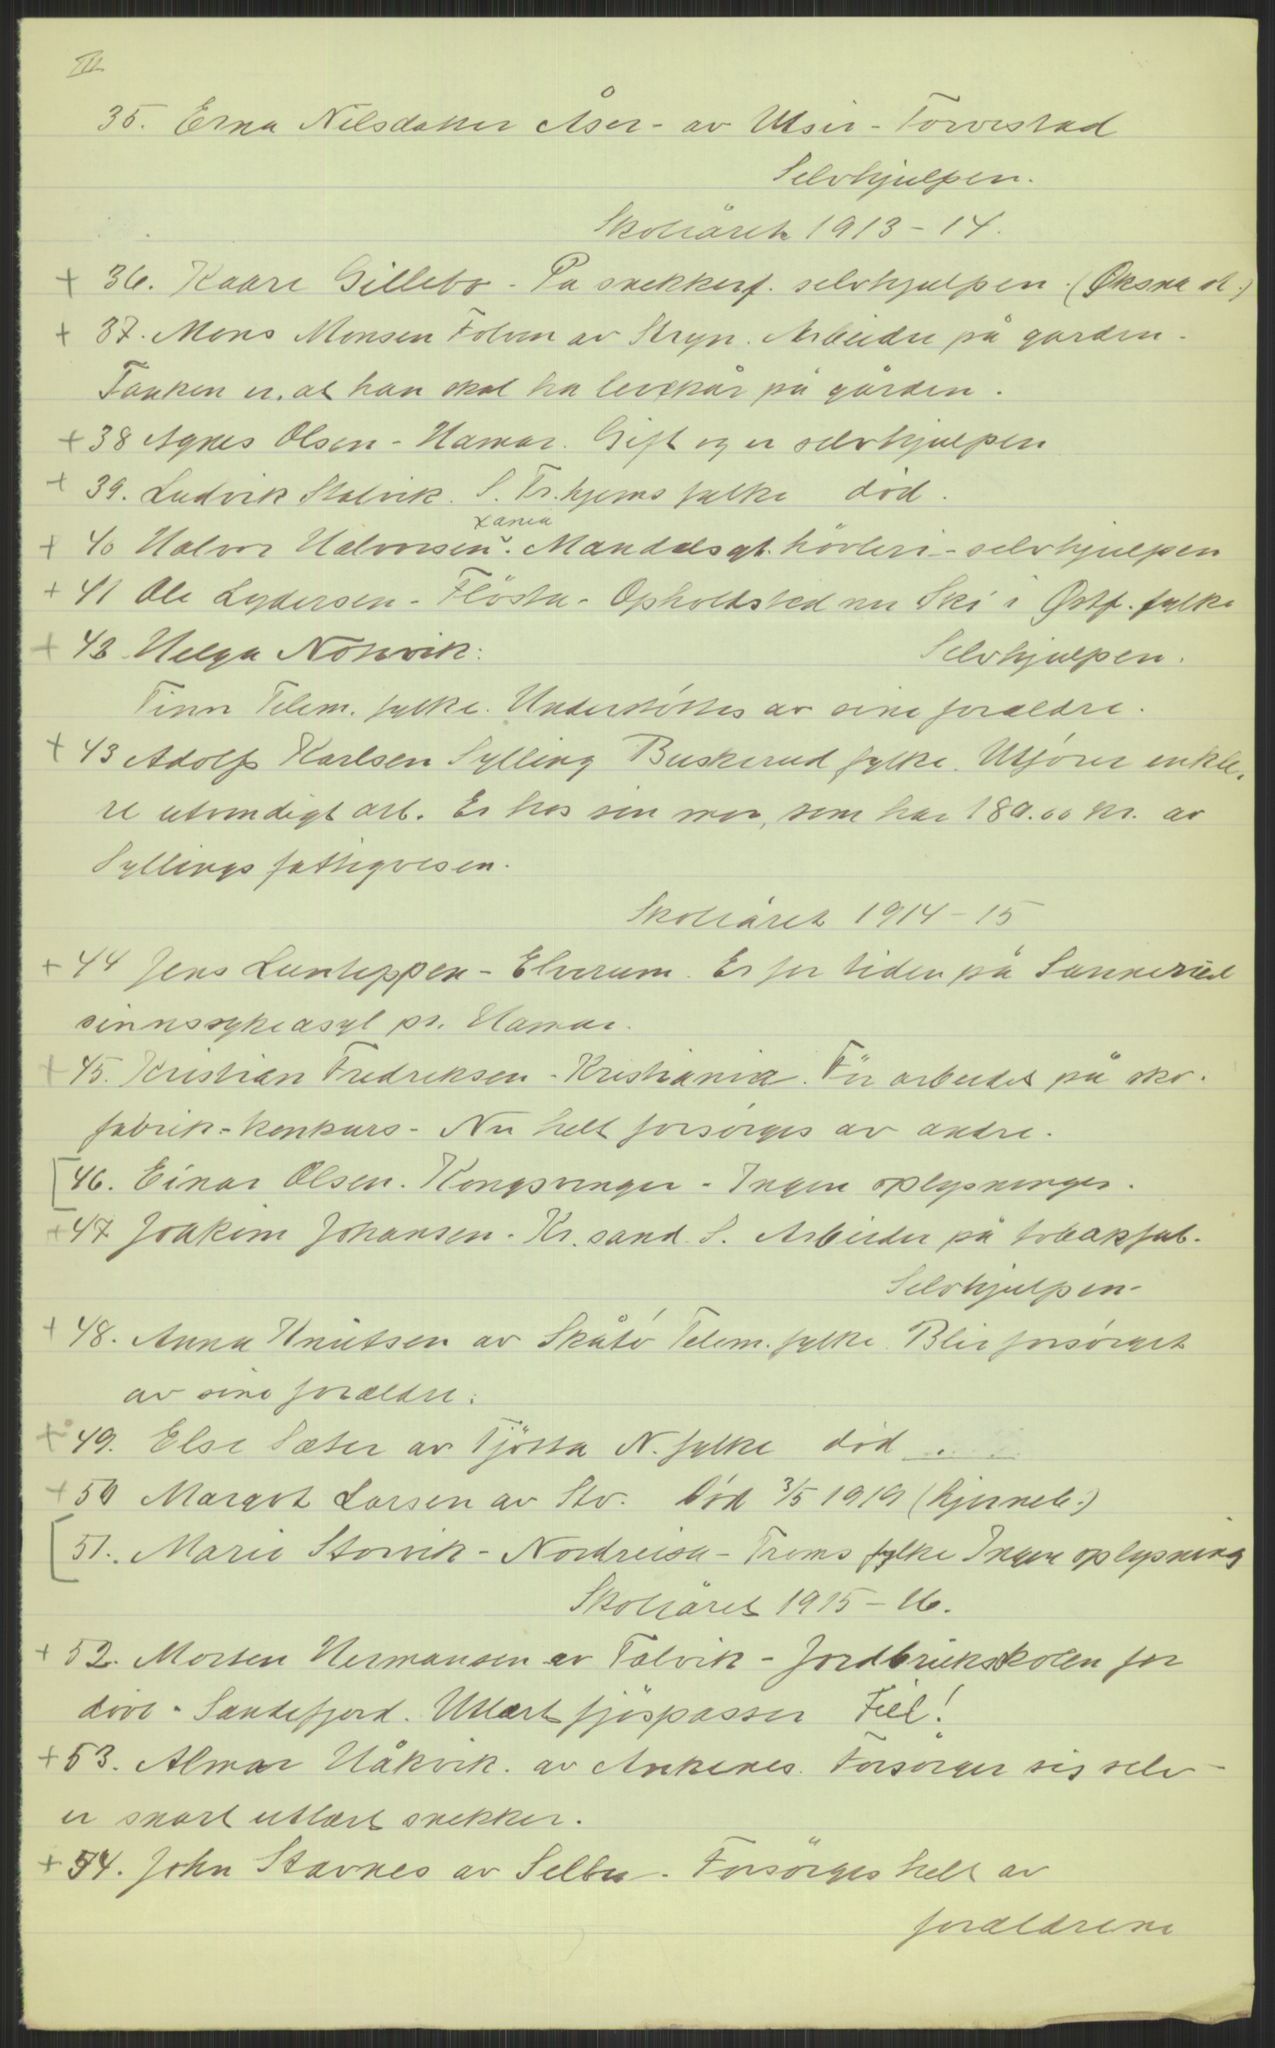 III
35. Erna Nilsdatter Åser - av Utsir - Torvestad
Selvhjulpen.
Skoleåret 1913 - 14.
+ 36. Kaare Gillebo - På snekkerf. selvhjulpen. (Øksna st.)
+ 37. Mons Monsen Folven av Stryn. Arbeider på garden.
Tanken er, at han skal ha levekår på gården.
+ 38 Agnes Olsen - Hamar. Gift og er selvhjulpen
+ 39. Ludvik Stalvik. S. Tr.hjems fylke død.
xania
+ 40 Halvor Halvorsen. Mandalsgt. høvleri - selvhjulpen
+ 41 Ole Lydersen - Flösta - Opholdsted nu Ski i Østf. fylke
+ 42 Helga Nordvik: Selvhjulpen.
Tinn Telem. fylke. Understöttes av sine foreldre.
+ 43 Adolf Karlsen Sylling Buskerud fylke. Utfører enkle-
re utvendigt arb. Er hos sin mor, som har 180.00 kr. av
Syllings fattigvesen.
Skoleåret 1914 - 15
+ 44 Jens Lunteppen - Elverum. Er for tiden på Sanderud
sinnssykeasyl pr. Hamar.
+ 45. Kristian Fredriksen - Kristiania. Før arbeidet på sko-
fabrik - konkurs - Nu helt forsörges av andre.
[46. Einar Olsen. Kongsvinger - Ingen oplysninger.
+ 47 Joakim Johansen. Kr.sand. S. Arbeider på tobakfab.
Selvhjulpen -
+ 48. Anna Knutsen av Skåtö Telem. fylke. Blir forsörget
av sine foreldre.
+ 49. Else Sæter av Tjötta N. fylke død
+ 50 Margot Larsen av Stv. Död 3/5 1919 (hjerneb.)
[51. Marie Storvik - Nordreisa - Troms fylke Ingen oplysning
Skoleåret 1915 - 16.
+ 52. Morten Hermansen av Talvik - Jordbruksskolen for
döve - Sandefjord. Utlært fjöspasser Feil!
+ 53. Almar Håkvik. av Ankenes. Forsörger sig selv -
er snart utlært snekker.
+ 54. John Stavnes av Selbu - Forsörges helt av
foreldrene